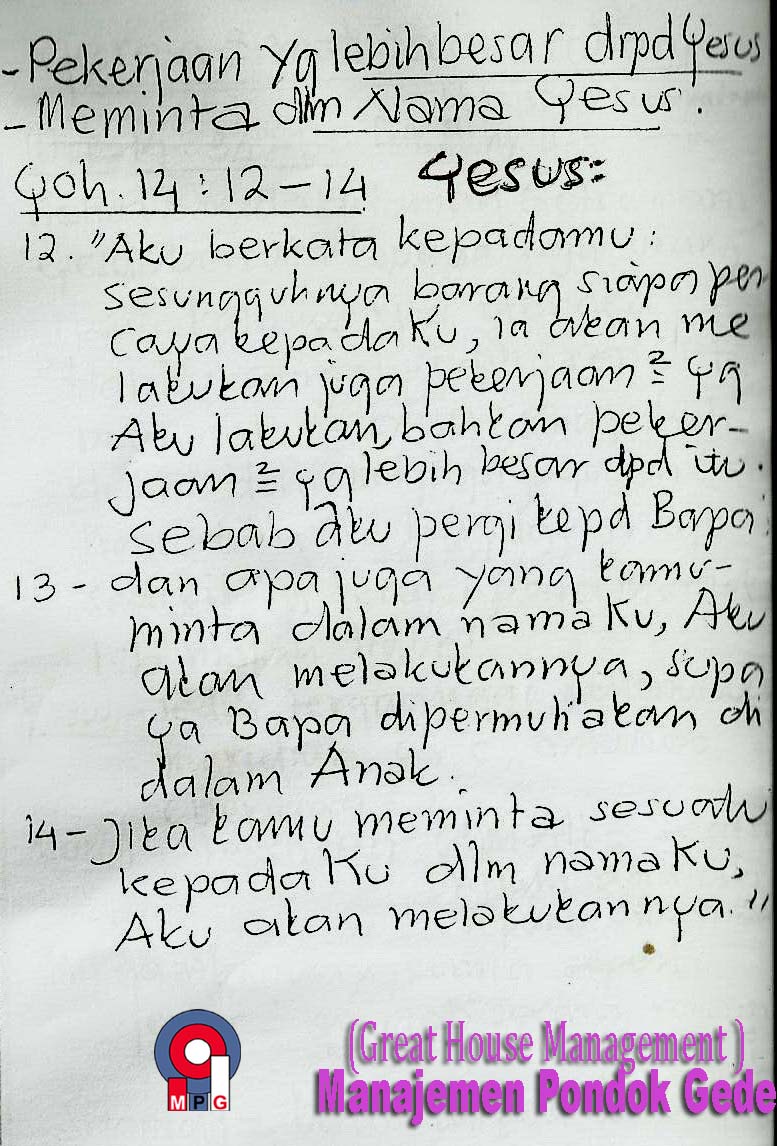 - Pekerjaan Yg lebih besar drpd Yesus
- Meminta dlm Nama Yesus.
Yoh. 14 : 12 - 14 Yesus:
12. "Aku berkata kepadamu :
sesungguhnya barang siapa per
caya kepadaKu, ia akan me
lakukan juga pekerjaan² yg
Aku lakukan, bahkan peker-
jaan² yg lebih besar dpd itu.
sebab aku pergi kepd Bapa
13 - dan apa juga yang kamu-
minta dalam nama Ku, Aku
akan melakukannya, supa
ya Bapa dipermuliakan di
dalam Anak.
14 - Jika kamu meminta sesuatu
kepada Ku dlm nama Ku,
Aku akan melakukannya."
MPG
(Great House Management )
Manajemen Pondok Gede